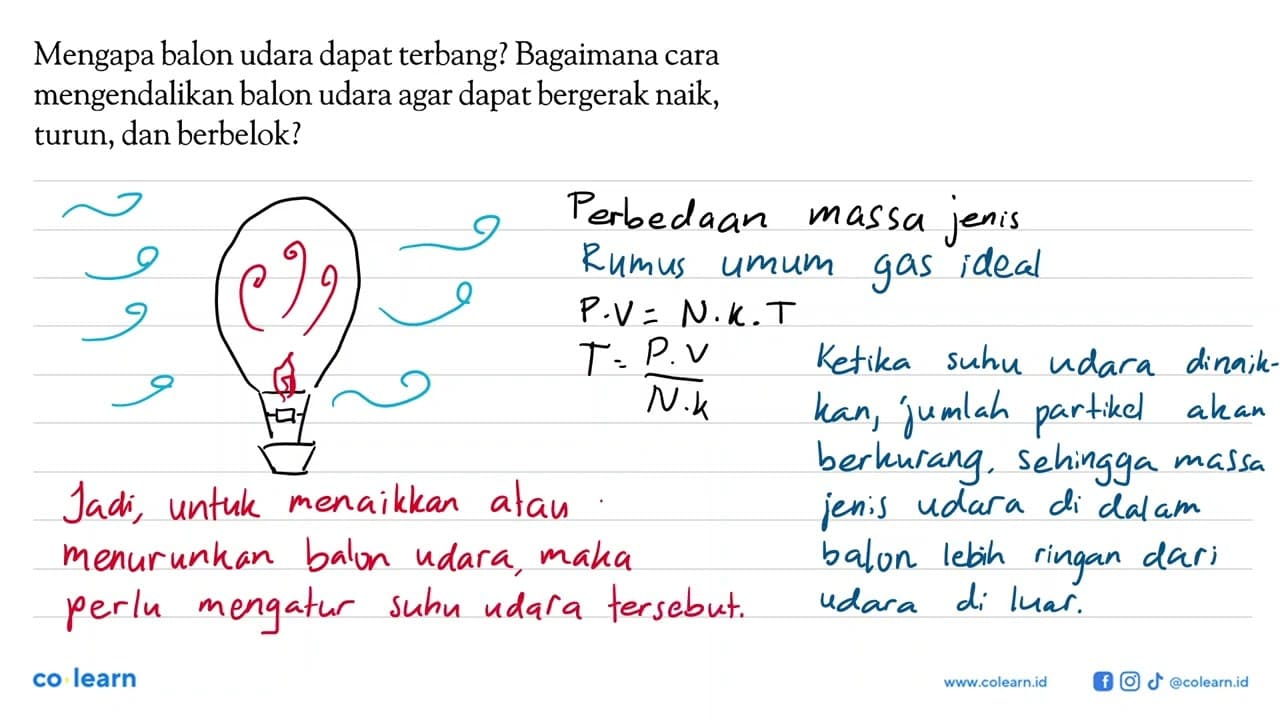 Mengapa balon udara dapat terbang? Bagaimana cara
mengendalikan balon udara agar dapat bergerak naik,
turun, dan berbelok?
Perbedaan massa jenis
Rumus umum gas ideal
P.V = N.k.T
T = P.V / N.k
Ketika suhu udara dinaik-
kan, jumlah partikel akan
berkurang, sehingga massa
jenis udara di dalam
balon lebih ringan dari
udara di luar.
Jadi, untuk menaikkan atau
menurunkan balon udara, maka
perlu mengatur suhu udara tersebut.
co learn
www.colearn.id
@colearn.id